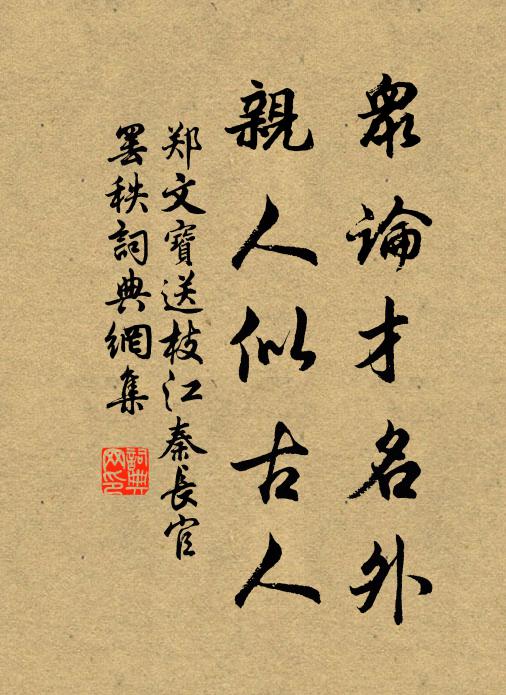 眾論才名外
親人似古人
郑文寶送枝江秦長官
罢秩詞典網集
詞典
网印